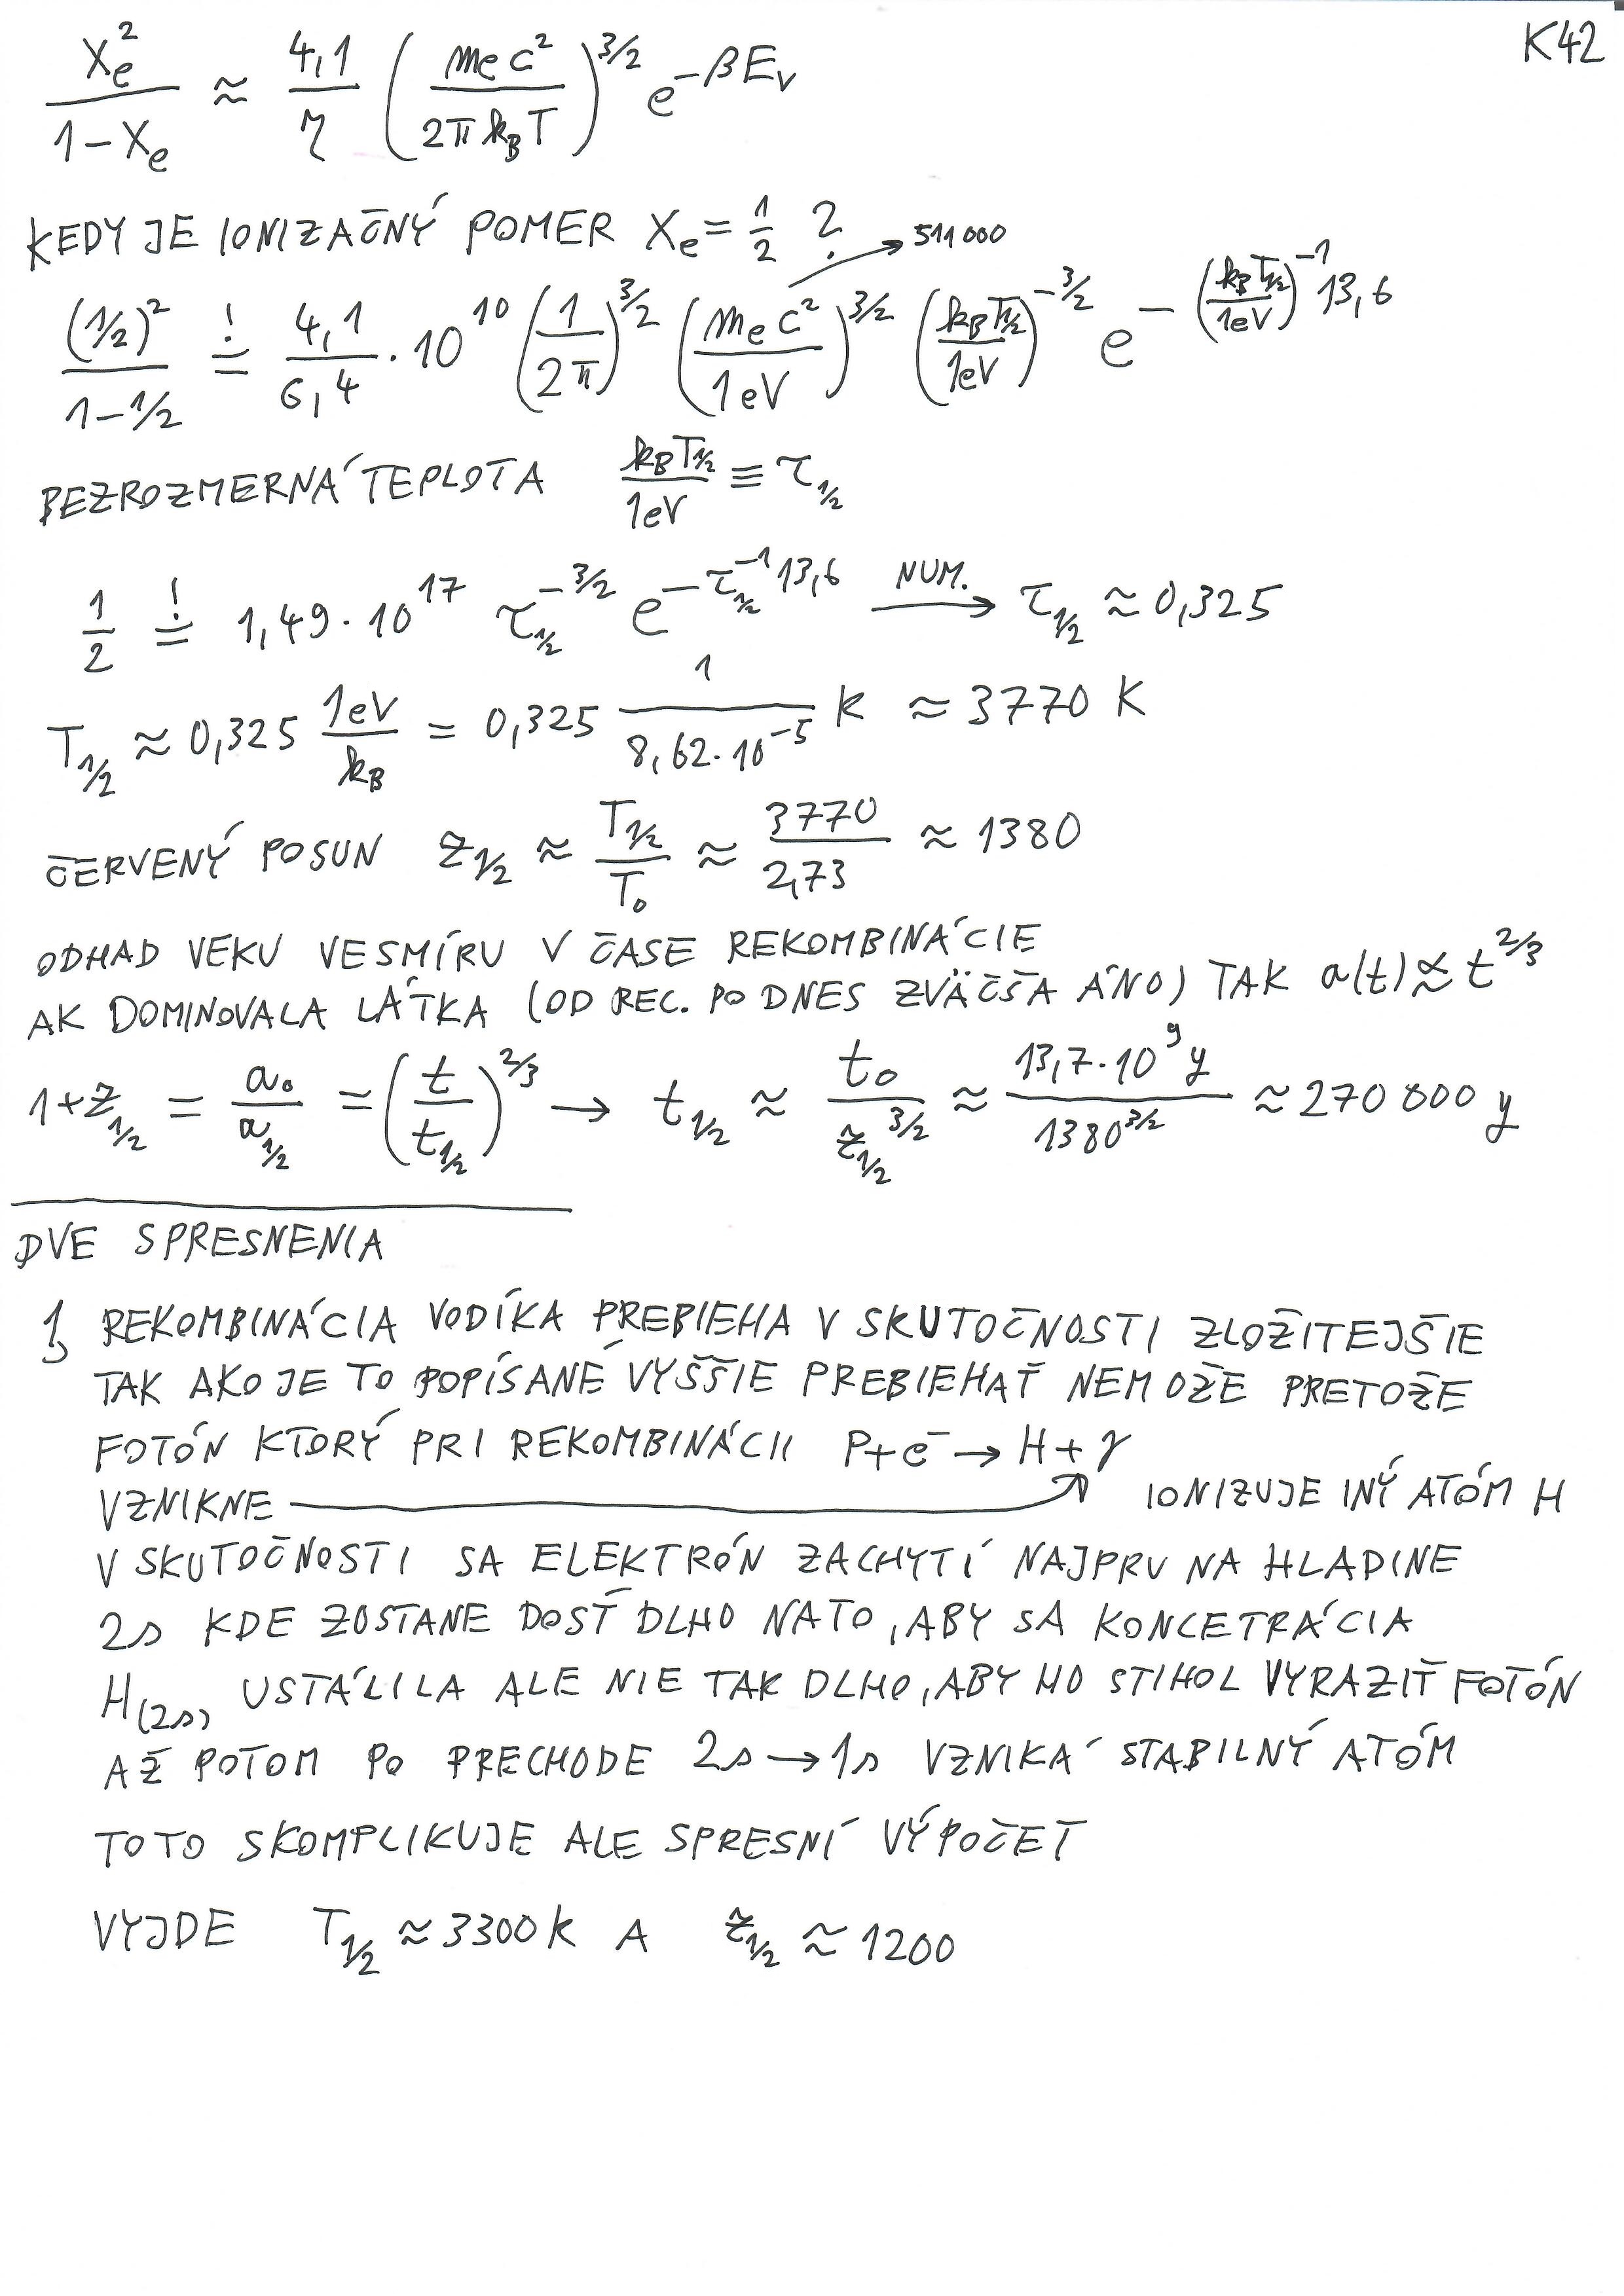 K42
X_e^2 / (1 - X_e) ≈ 4,1/η (m_e c^2 / 2π k_B T)^{3/2} e^{-βE_V}
KEDY JE IONIZAČNÝ POMER X_e = 1/2 ? → 511 000
(1/2)^2 / (1 - 1/2) =! 4,1/6,4 · 10^{10} (1/2π)^{3/2} (m_e c^2 / 1eV)^{3/2} (k_B T_{1/2} / 1eV)^{-3/2} e^{-(k_B T_{1/2} / 1eV)^{-1} 13,6}
BEZROZMERNÁ TEPLOTA k_B T_{1/2} / 1eV ≡ τ_{1/2}
1/2 =! 1,49 · 10^{17} τ_{1/2}^{-3/2} e^{-τ_{1/2}^{-1} 13,6} NUM. → τ_{1/2} ≈ 0,325
T_{1/2} ≈ 0,325 1eV/k_B = 0,325 1/(8,62·10^{-5}) K ≈ 3770 K
ČERVENÝ POSUN z_{1/2} ≈ T_{1/2}/T_0 ≈ 3770/2,73 ≈ 1380
ODHAD VEKU VESMÍRU V ČASE REKOMBINÁCIE
AK DOMINOVALA LÁTKA (OD REC. PO DNES ZVÄČŠA ÁNO) TAK a(t) ∝ t^{2/3}
1+z_{1/2} = a_0/a_{1/2} = (t/t_{1/2})^{2/3} → t_{1/2} ≈ t_0/z_{1/2}^{3/2} ≈ 13,7·10^9 y / 1380^{3/2} ≈ 270 000 y
DVE SPRESNENIA
1, REKOMBINÁCIA VODÍKA PREBIEHA V SKUTOČNOSTI ZLOŽITEJŠIE
TAK AKO JE TO POPÍSANÉ VYŠŠIE PREBIEHAŤ NEMOŽE PRETOŽE
FOTÓN KTORÝ PRI REKOMBINÁCII P+e^- → H+γ
VZNIKNE IONIZUJE INÝ ATÓM H
V SKUTOČNOSTI SA ELEKTRÓN ZACHYTÍ NAJPRV NA HLADINE
2s KDE ZOSTANE DOSŤ DLHO NATO, ABY SA KONCETRÁCIA
H_{(2s)} USTÁLILA ALE NIE TAK DLHO, ABY HO STIHOL VYRAZIŤ FOTÓN
AŽ POTOM PO PRECHODE 2s → 1s VZNIKÁ STABILNÝ ATÓM
TOTO SKOMPLIKUJE ALE SPRESNÍ VÝPOČET
VYJDE T_{1/2} ≈ 3300 K A z_{1/2} ≈ 1200